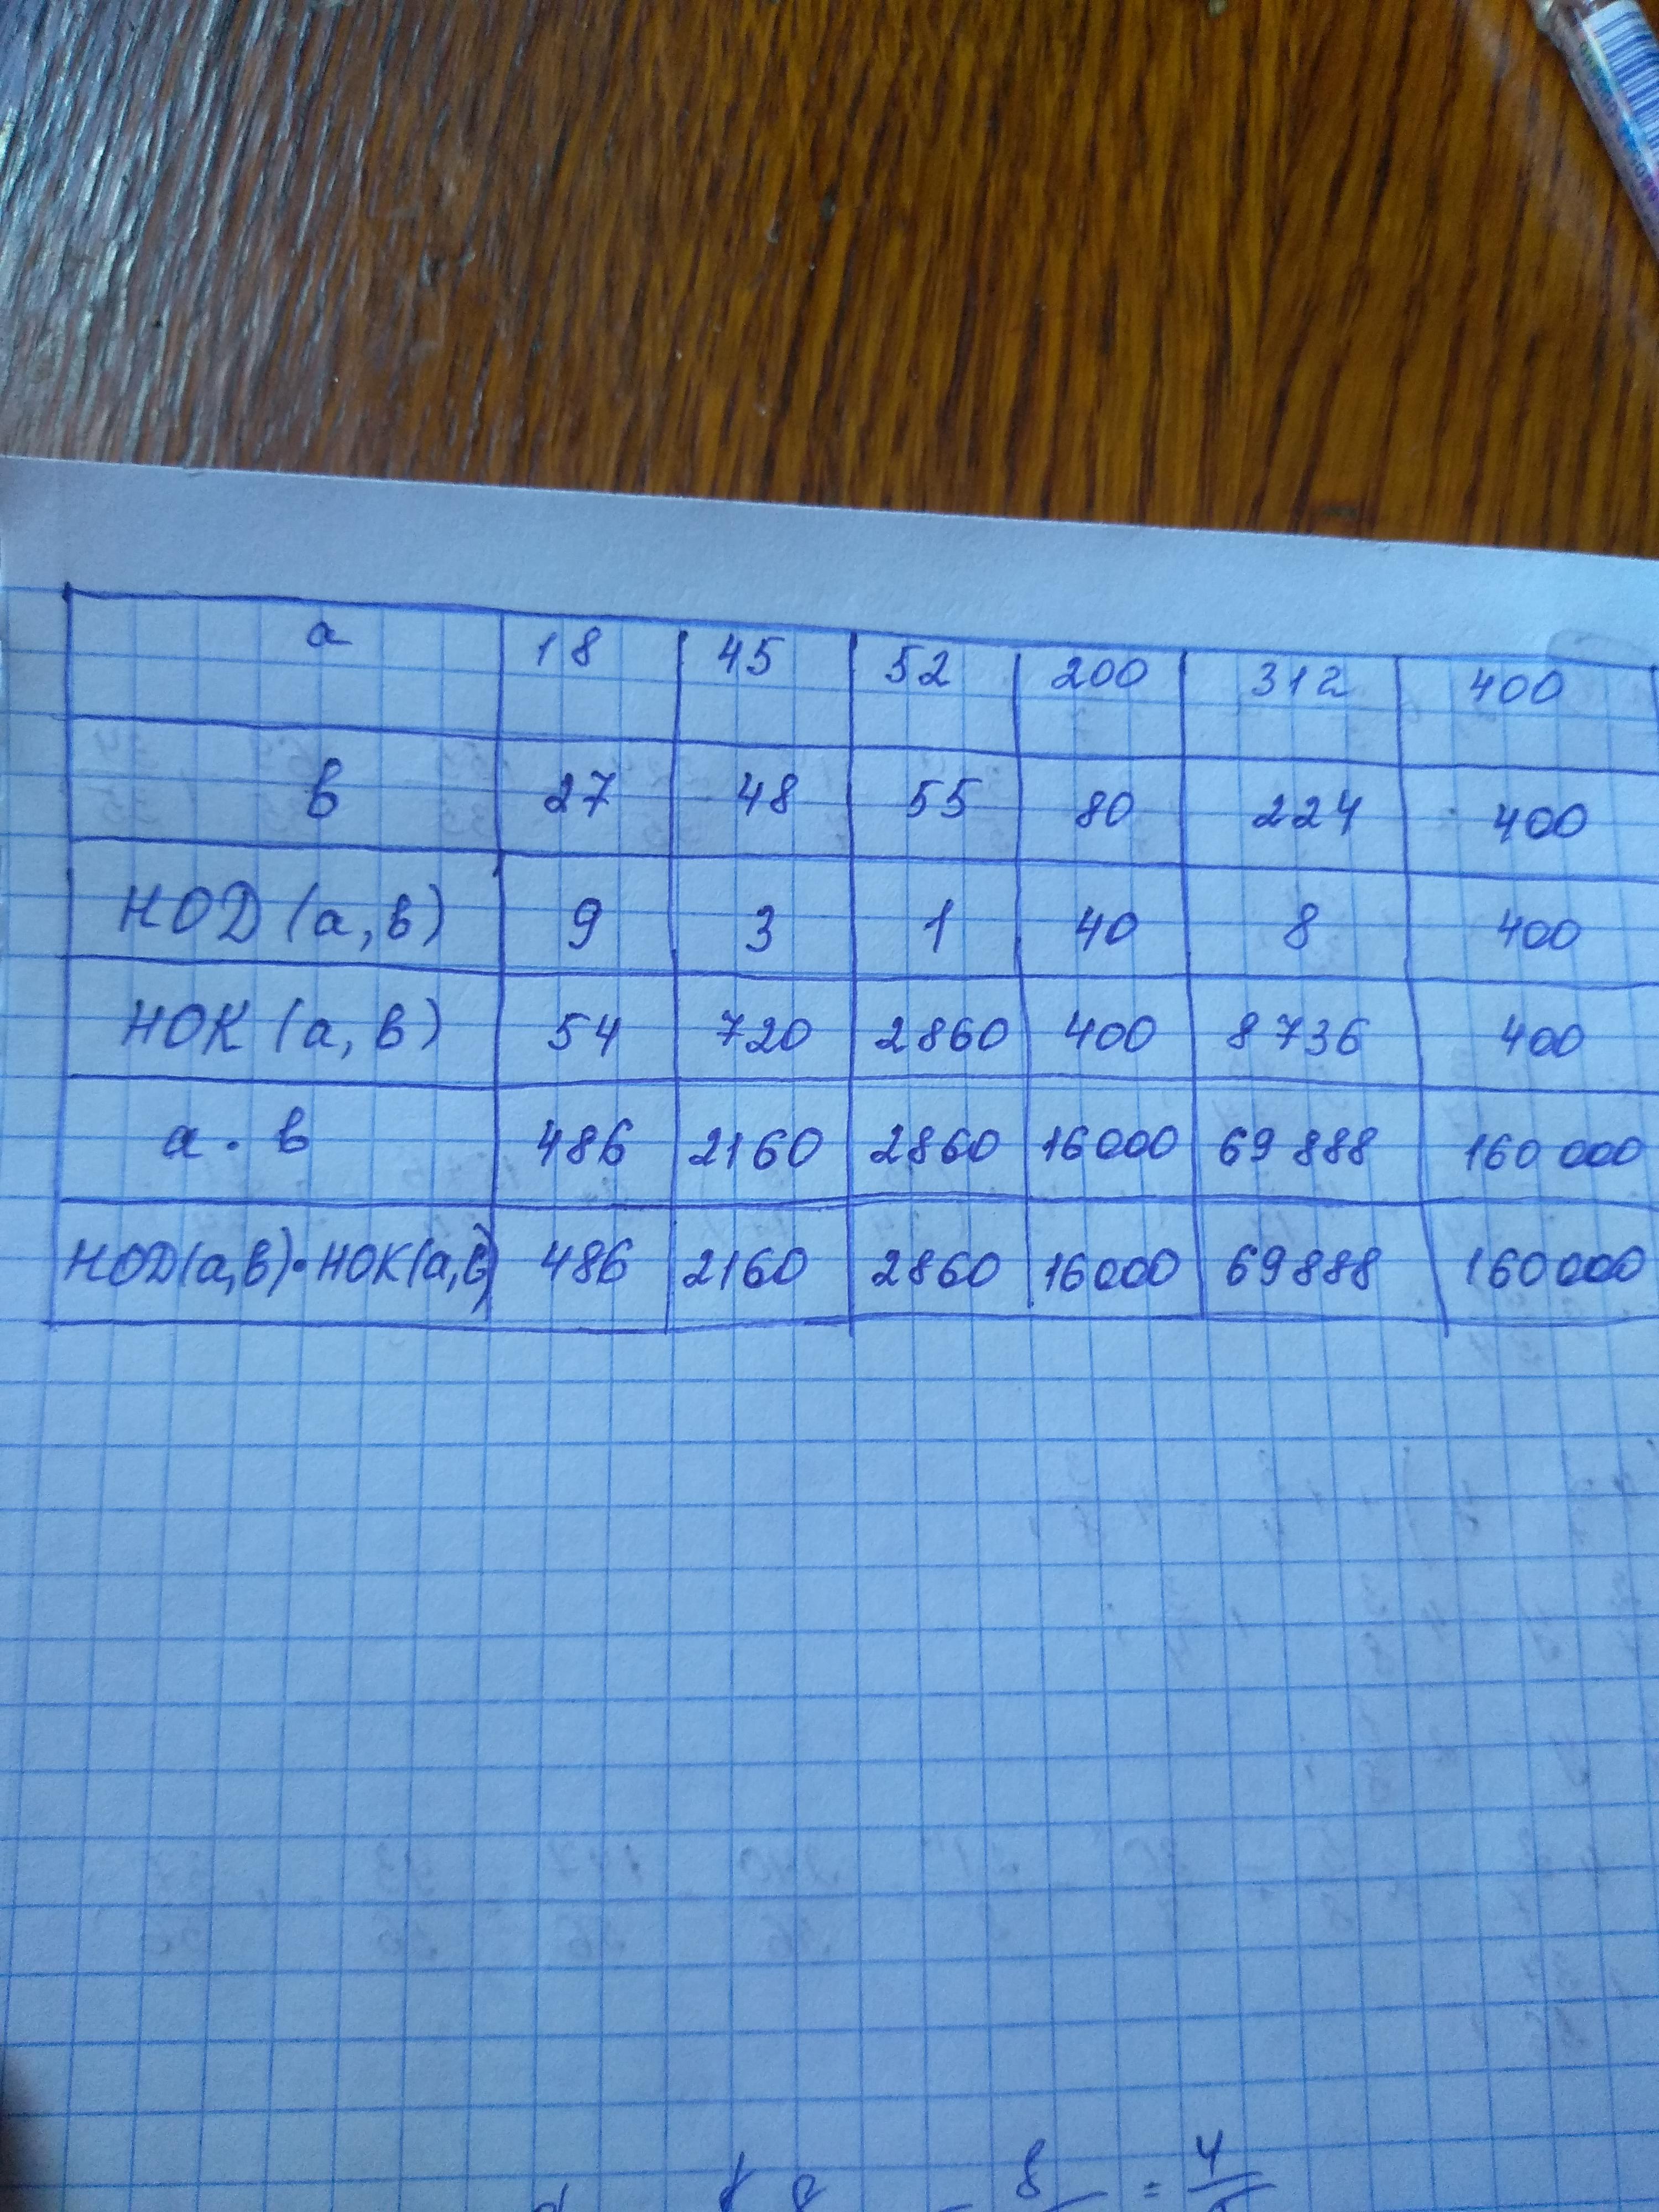 а 18 45 52 200 312 400
в 27 48 55 80 224 400
НОД (а, в) 9 3 1 40 8 400
НОК (а, в) 54 720 2860 400 8736 400
а · в 486 2160 2860 16000 69 888 160 000
НОД(а,в)·НОК(а,в) 486 2160 2860 16000 69888 160000